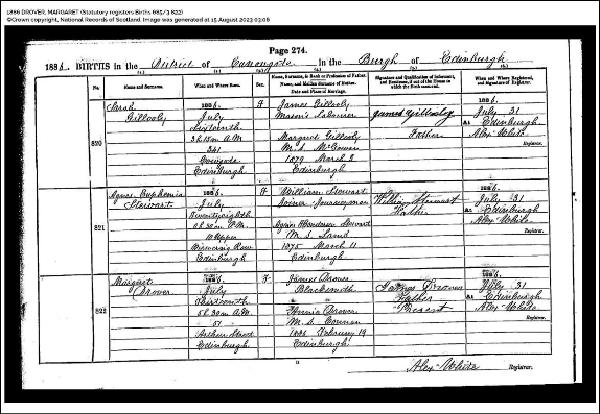 1886 DROVER, MARGARET (Statutory registers Births 685/3 822)
©Crown copyright, National Records of Scotland. Image was generated at 15 August 2023 03:06
Page 274.
1886. BIRTHS in the District of Canongate in the Burgh of Edinburgh
No.
Name and Surname.
When and Where Born.
Sex.
Name, Surname, & Rank or Profession of Father.
Name, and Maiden Surname of Mother.
Date and Place of Marriage.
Signature and Qualification of Informant,
and Residence, if out of the House in
which the Birth occurred.
When and Where Registered,
and Signature of Registrar.
820
Sarah
Gillooly
1886.
July
Sixteenth
3h 15m A.M.
Cowgate
Edinburgh
F
James Gillooly
Mason's Labourer
Margaret Gillooly
M.S. McGowan
1879 March 2
Edinburgh
James Gillooly
Father
1886.
July 31
At Edinburgh
Alex White
Registrar.
821
Agnes Euphemia
Stewart
1886.
July
Edinburgh
F
William Stewart
Joiner Journeyman
Agnes Henderson Stewart
M.S.
1875 March 11
Edinburgh
William Stewart
Father
1886.
July 31
At Edinburgh
Alex White
Registrar.
822
Margaret
Drover
1886.
July
5h 30m A.M.
Arthur Street
Edinburgh
F
James Drover
Blacksmith
Annie Drover
M.S.
1886 February 19
Edinburgh
James Drover
Father
Present
1886.
July 31
At Edinburgh
Alex White
Registrar.
Alex White Registrar.